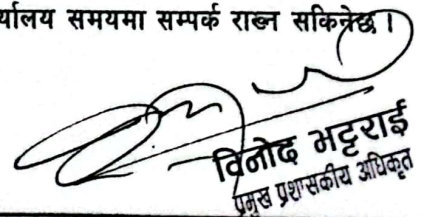 र्यालय समयमा सम्पर्क राख्न सकिनेछ।
विनोद भट्टराई
प्रमुख प्रशासकीय अधिकृत